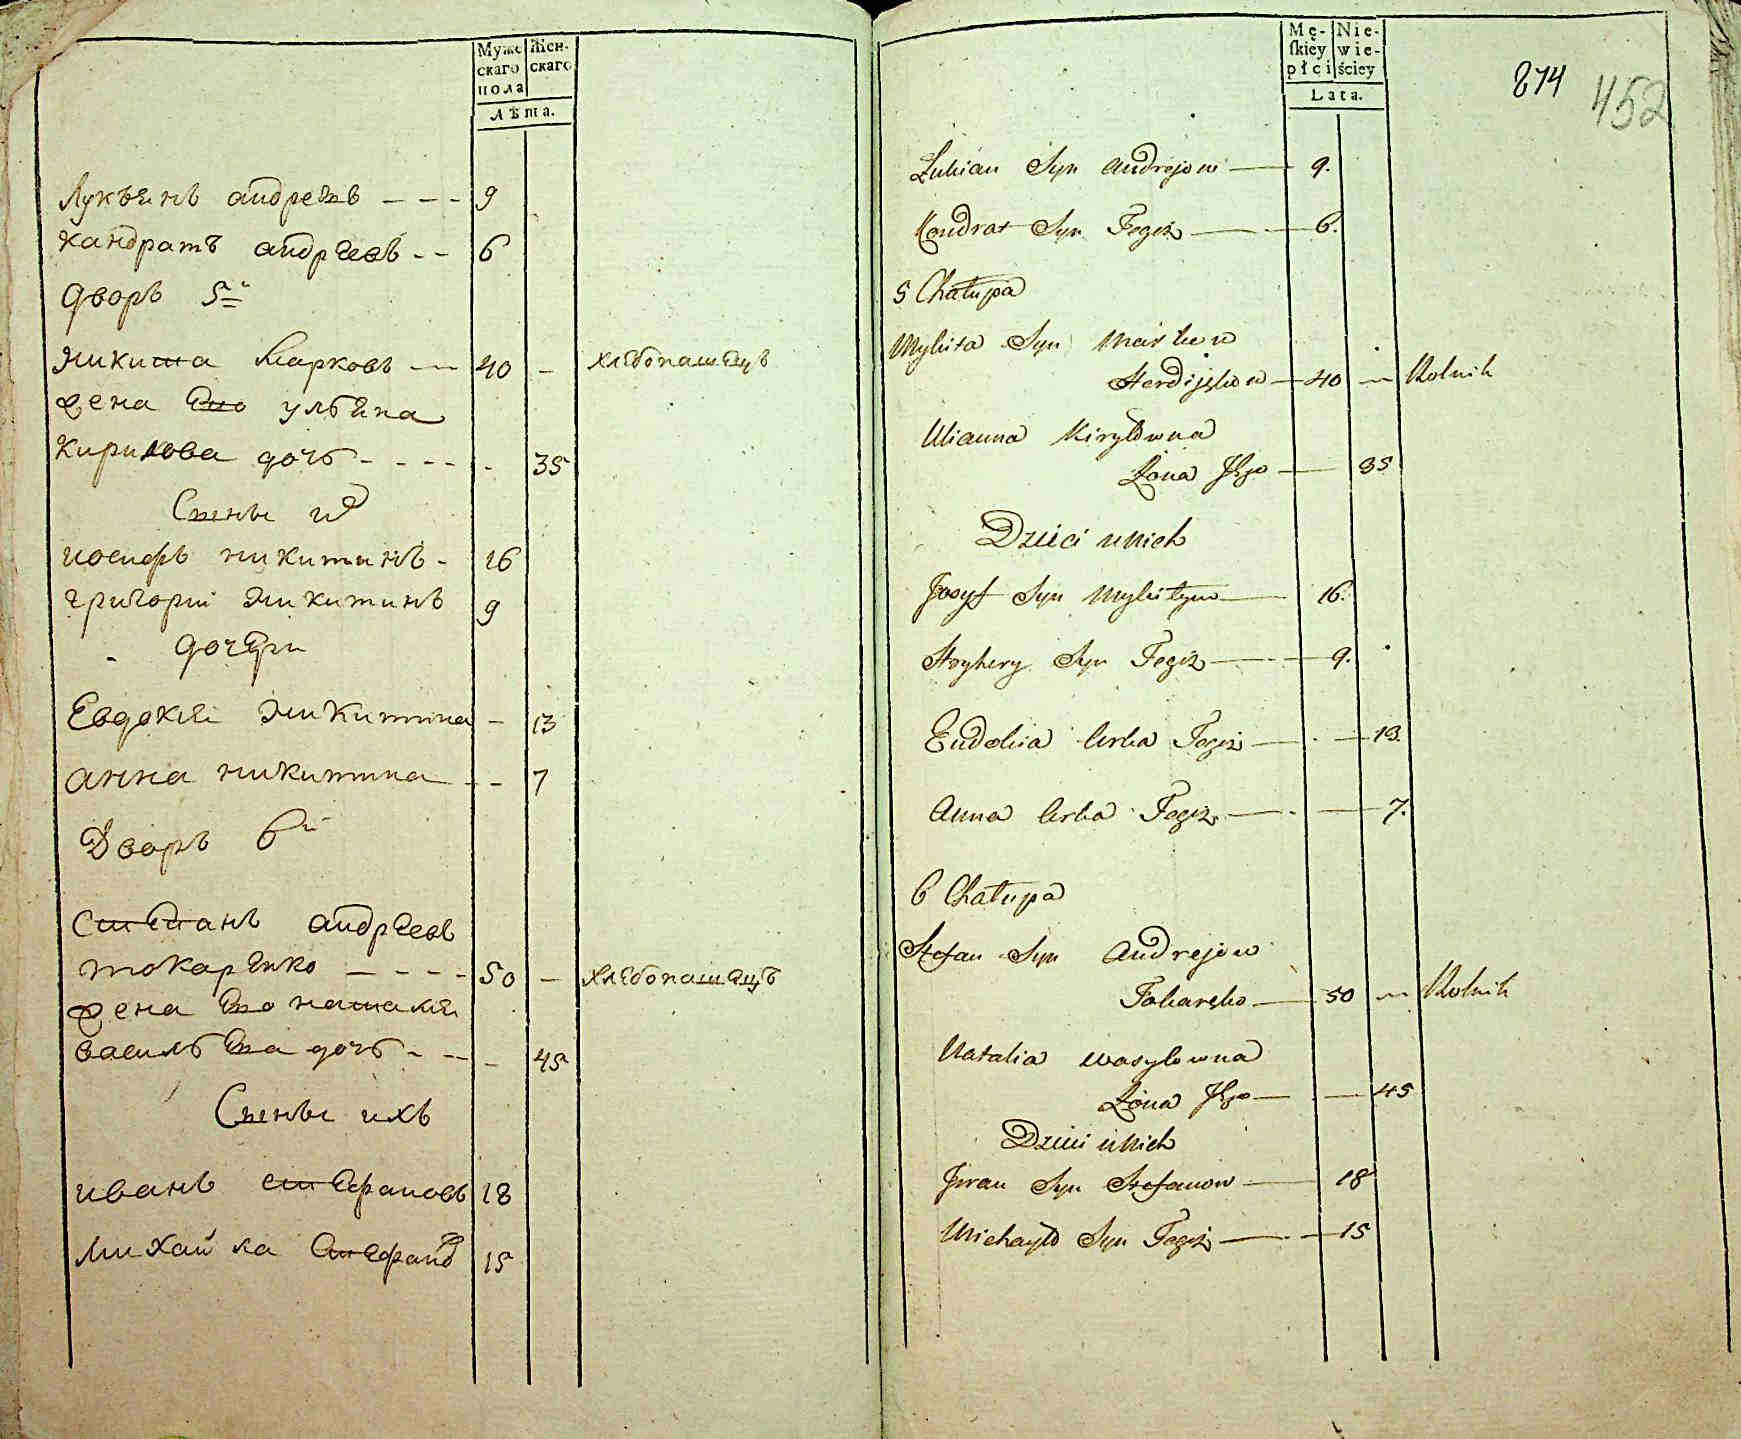 Муже Жен-
скаго скаго
пола
Лѣта.
Лукъянъ андреевъ - - - 9
кандратъ андреевъ - - 6
дворъ 5й
Никита Марковъ — 40 - хлебопашецъ
жена Его ульяна
Кирилова дочь - - - - - 35
Сыны их
иосифъ никитинъ - 16
григорий Никитинъ 9
дочери
Евдокия Никитина - 13
анна никитина - - 7
Дворъ 6й
Стефанъ андреевъ
токаренко - - - - 50 - хлебопашецъ
жена Его наталия
василева дочь - - - 45
Сыны ихъ
иванъ стефановъ 18
михайла Стефанов 15
Mę- Nie-
skiey wie-
płci ściey
Lata.
874
452
Lukian Syn Andrejow — 9.
Kondrat Syn Tegoż — 6.
5 Chałupa
Mykita Syn Markow
— 40 — Rolnik
Ulianna Kiryłowna
Żona Jego — 35
Dzieci u nich
Josyf Syn Mykityn — 16.
Hryhory Syn Tegoż — 9.
Eudokia Corka Tegoż — 13.
Anna Corka Tegoż — 7.
6 Chałupa
Stefan Syn Andrejow
Tokarenko — 50 — Rolnik
Natalia Wasylowna
Żona Jego — 45
Dzieci u nich
Jwan Syn Stefanow — 18
Michayło Syn Tegoż — 15